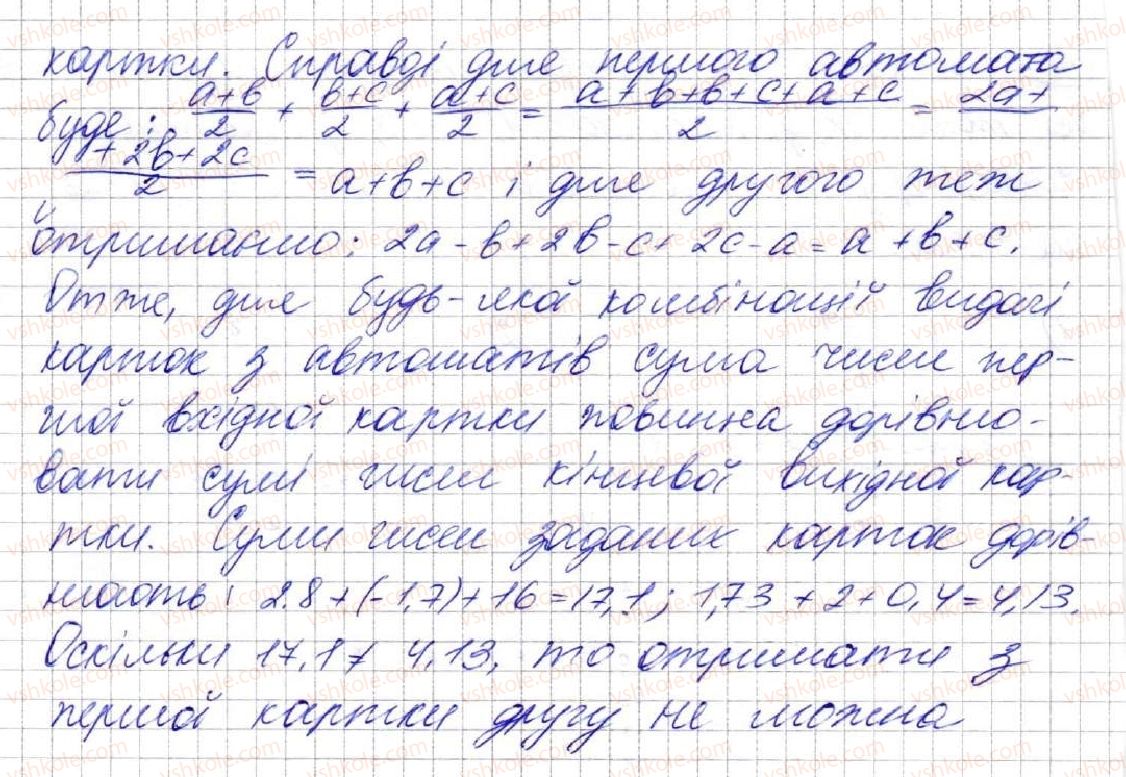 картки. Справді для першого автомата
буде: (a+b)/2 + (b+c)/2 + (a+c)/2 = (a+b+b+c+a+c)/2 = (2a+
+2b+2c)/2 = a+b+c і для другого теж
отримаємо: 2a-b+2b-c+2c-a=a+b+c.
Отже, для будь-якої комбінації видачі
карток з автоматів сума чисел пер-
шої вхідної картки повинна дорівню-
вати сумі чисел кінцевої вихідної кар-
тки. Суми чисел заданих карток дорів-
нюють: 2.8+(-1,7)+16=17,1; 1,73+2+0,4=4,13.
Оскільки 17,1≠ 4,13, то отримати з
першої картки другу не можна